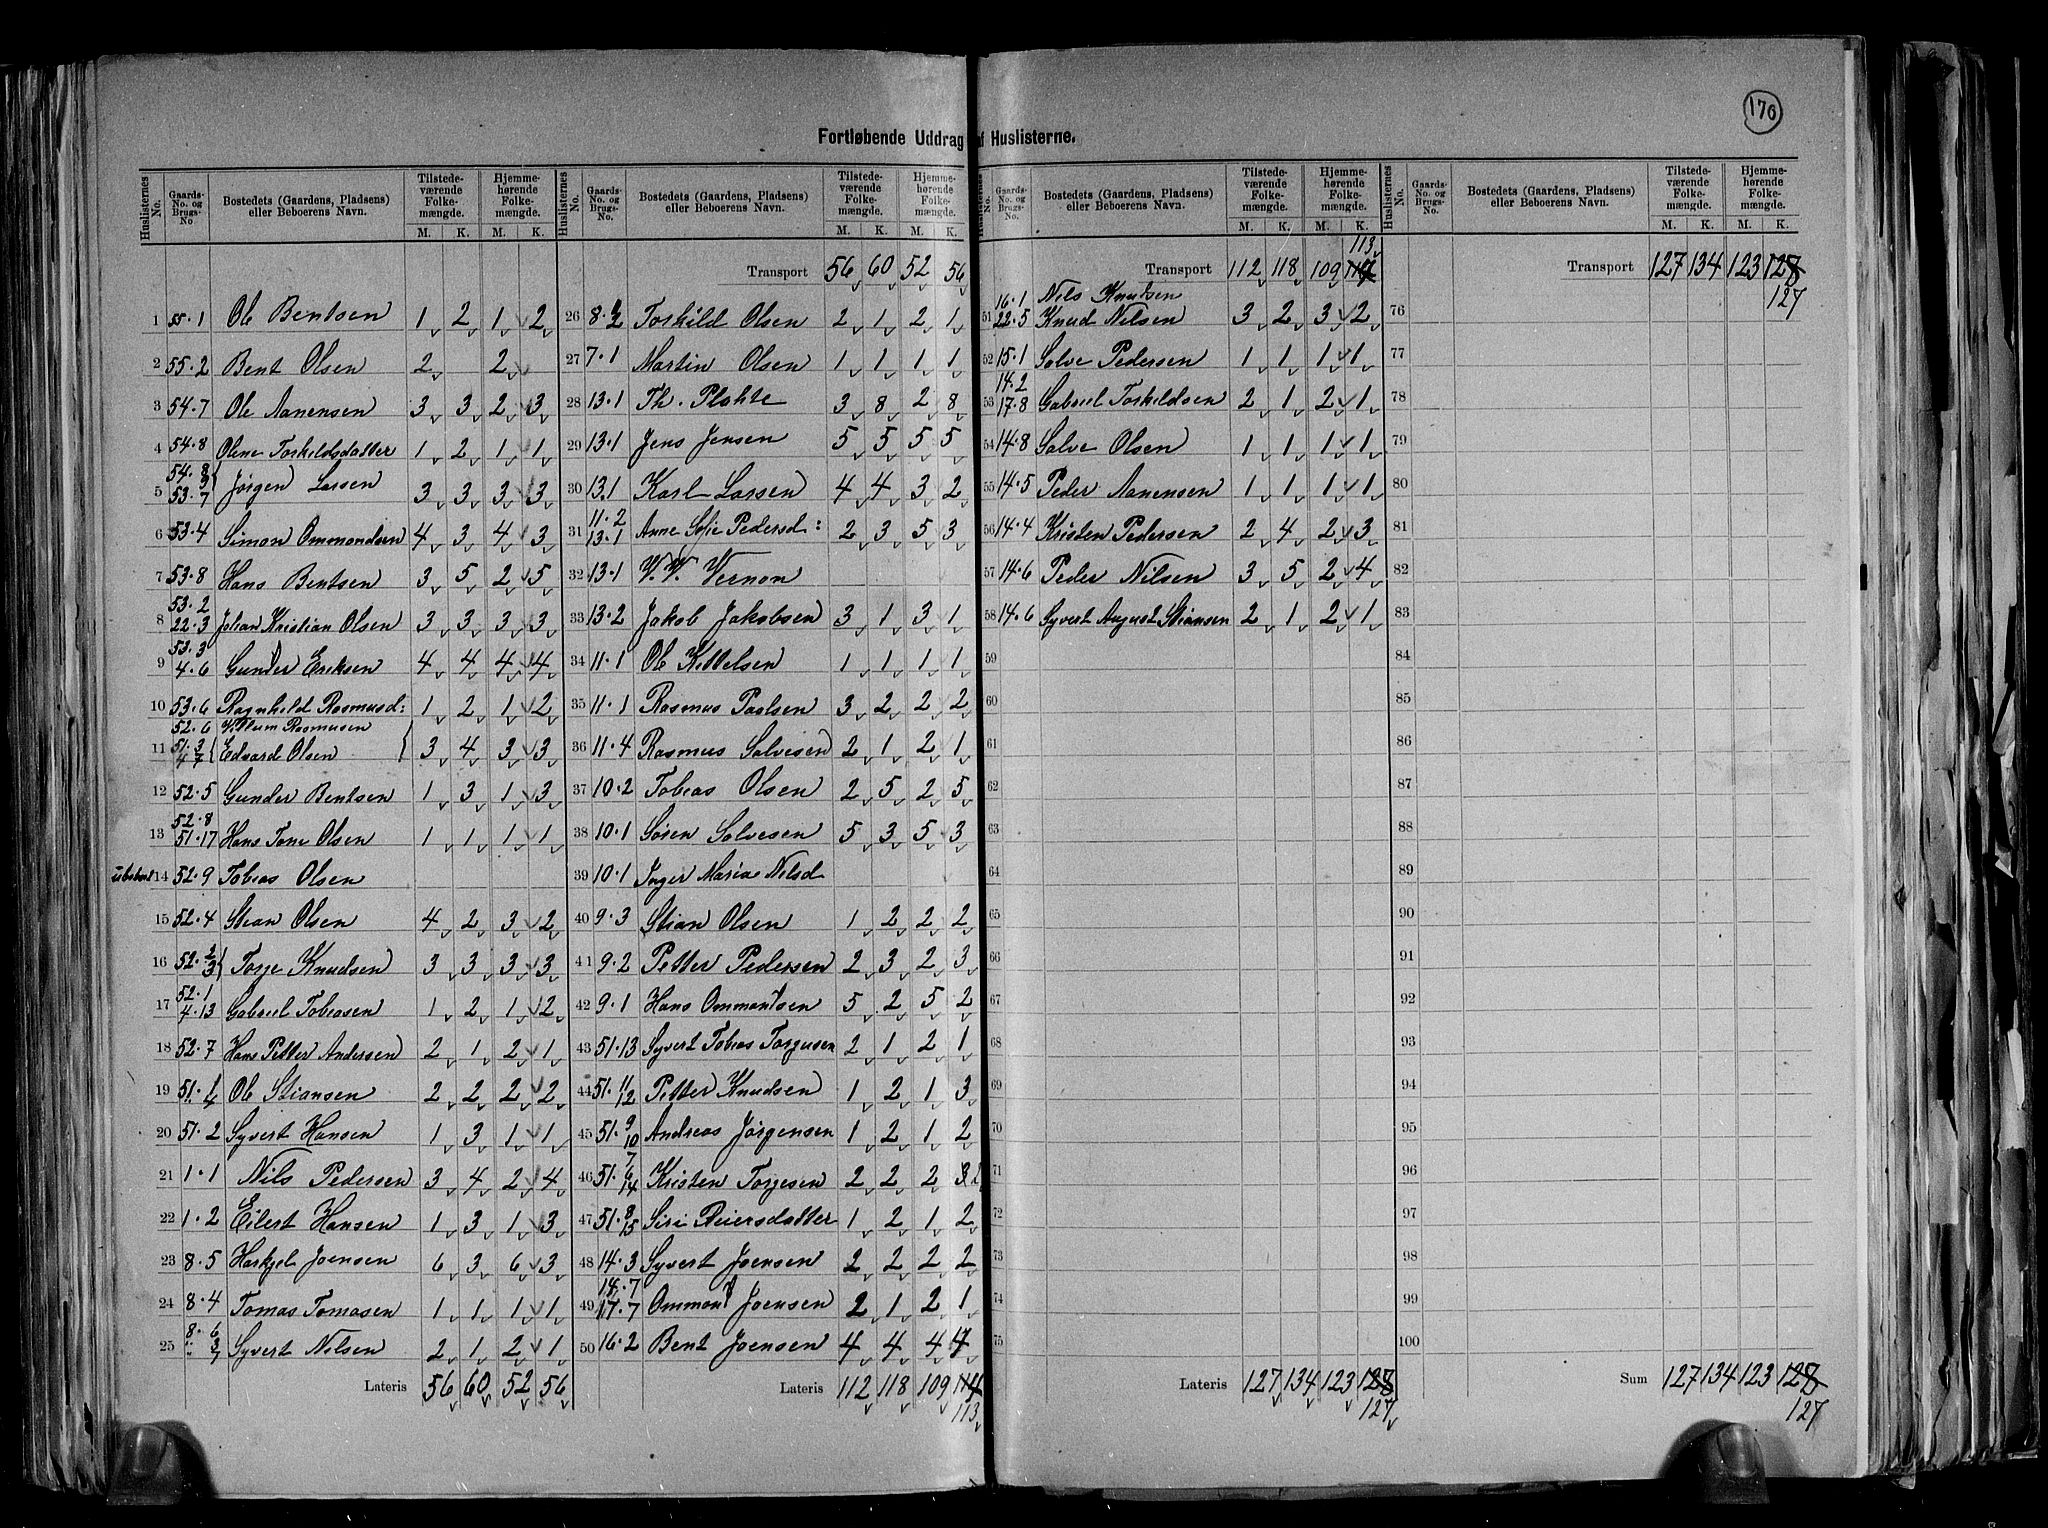 170
Fortløbende Uddrag af Huslisterne.
Huslisternes No. Gaards-No. og Brugs-No Bostedets (Gaardens, Pladsens) eller Beboerens Navn. Tilstedeværende Folkemængde. M. K. Hjemmehørende Folkemængde. M. K.
1 55·1 Ole Bentsen 1 2 1 2
2 55·2 Bent Olsen 2 2
3 54·7 Ole Aanensen 3 3 2 3
4 54·8 Olene Torkildsdatter 1 2 1 1
5 54·8/9 53·7 Jørgen Larsen 3 3 3 3
6 53·4 Simon Ommundsen 4 3 4 3
7 53·8 Hans Bentsen 3 5 2 5
8 53·2 22·3 Johan Kristian Olsen 3 3 3 3
9 53·3 4·6 Gunder Eriksen 4 4 4 4
10 53·6 Ragnhild Rasmusd: 1 2 1 2
52·6 Villum Rasmusen
11 51·3 4·7 Edvard Olsen 3 4 3 3
12 52·5 Gunder Bentsen 1 3 1 3
13 52·8 51·17 Hans Tome Olsen 1 1 1 1
ubeboet 14 52·9 Tobias Olsen
15 52·4 Stian Olsen 4 2 3 2
16 52·2/3 Torje Knudsen 3 3 3 3
17 52·1 4·13 Gabriel Tobiasen 1 2 1 2
18 52·7 Hans Petter Andersen 2 1 2 1
19 51·1 4 Ole Stiansen 2 2 2 2
20 51·2 Syvert Hansen 1 3 1 1
21 1·1 Nils Pedersen 3 4 2 4
22 1·2 Eilert Hansen 1 3 1 3
23 8·5 Harkjel Joensen 6 3 6 3
24 8·4 Tomas Tomasen 1 1 1 1
25 8·6 " 3 " 7 Syvert Nilsen 2 1 2 1
Lateris 56 60 52 56
Huslisternes No. Gaards-No. og Brugs-No. Bostedets (Gaardens, Pladsens) eller Beboerens Navn. Tilstedeværende Folkemængde. M. K. Hjemmehørende Folkemængde. M. K.
Transport 56 60 52 56
26 8·2 Torkild Olsen 2 1 2 1
27 7·1 Martin Olsen 1 1 1 1
28 13·1 Th. Plahte 3 8 2 8
29 13·1 Jens Jensen 5 5 5 5
30 13·1 Karl Larsen 4 4 3 2
31 11·2 13·1 Anne Sofie Pedersd: 2 3 5 3
32 13·1 W. W. Vernon
33 13·2 Jakob Jakobsen 3 1 3 1
34 11·1 Ole Kittelsen 1 1 1 1
35 11·1 Rasmus Paalsen 3 2 2 2
36 11·4 Rasmus Salvesen 2 1 2 1
37 10·2 Tobias Olsen 2 5 2 5
38 10·1 Søren Salvesen 5 3 5 3
39 10·1 Inger Maria Nilsd
40 9·3 Stian Olsen 1 2 2 2
41 9·2 Petter Pedersen 2 3 2 3
42 9·1 Hans Ommundsen 5 2 5 2
43 51·13 Syvert Tobias Torgusen 2 1 2 1
44 51·11/12 Petter Knudsen 1 2 1 3
45 51·9/10 Andreas Jørgensen 1 2 1 2
46 51·7/6/14 Kristen Torjesen 2 2 2 3 2
47 51·8/15 Siri Reiersdatter 1 2 1 2
48 14·3 Syvert Joensen 2 2 2 2
49 14·7 17·7 Ommund Joensen 2 1 2 1
50 16·2 Bent Joensen 4 4 4 4
Lateris 112 118 109 114
113
Huslisternes No. Gaards-No. og Brugs-No. Bostedets (Gaardens, Pladsens) eller Beboerens Navn. Tilstedeværende Folkemængde. M. K. Hjemmehørende Folkemængde. M. K.
113
Transport 112 118 109 114
16·1 Nils Knudsen
51 22·5 Knud Nilsen 3 2 3 2
52 15·1 Salve Pedersen 1 1 1 1
53 14·2 17·8 Gabriel Torkildsen 2 1 2 1
54 14·8 Salve Olsen 1 1 1 1
55 14·5 Peder Aanensen 1 1 1 1
56 14·4 Kristen Pedersen 2 4 2 3
57 14·6 Peder Nilsen 3 5 2 4
58 14·6 Syvert August Stiansen 2 1 2 1
59
60
61
62
63
64
65
66
67
68
69
70
71
72
73
74
75
Lateris 127 134 123 128
127
Huslisternes No. Gaards-No. og Brugs-No. Bostedets (Gaardens, Pladsens) eller Beboerens Navn. Tilstedeværende Folkemængde. M. K. Hjemmehørende Folkemængde. M. K.
Transport 127 134 123 128
127
76
77
78
79
80
81
82
83
84
85
86
87
88
89
90
91
92
93
94
95
96
97
98
99
100
Sum 127 134 123 128
127